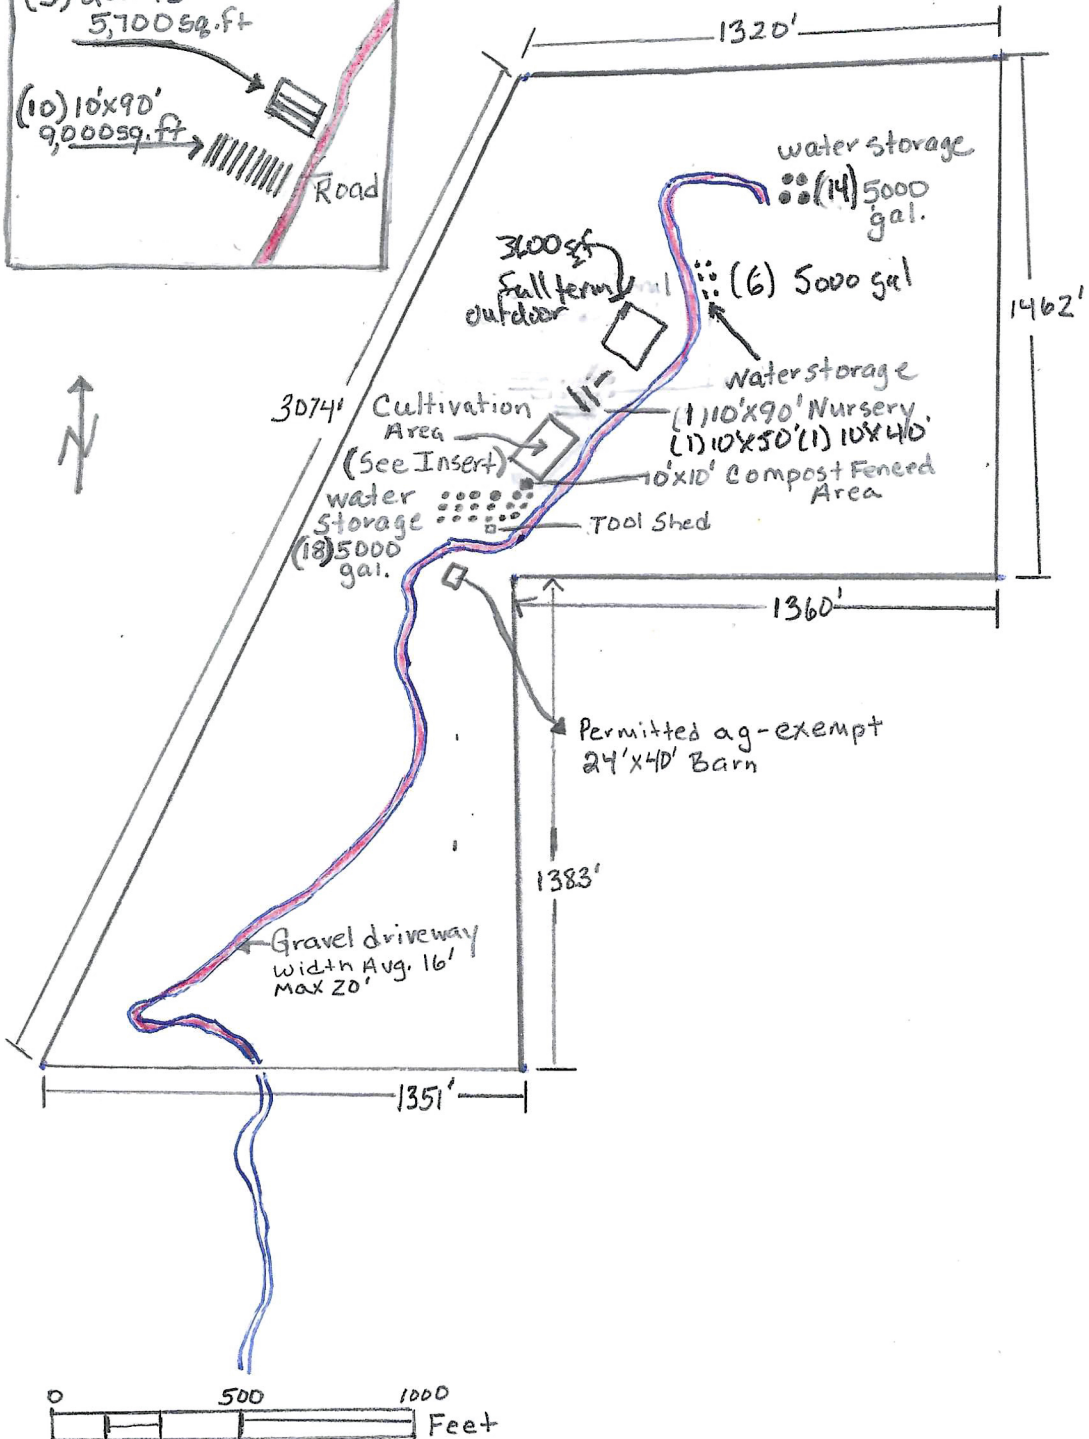 5,700 sq.ft
(10) 10'x90'
9,000 sq.ft
Road
1320'
water storage
(14) 5000
gal.
3600 sf
full term
outdoor
(6) 5000 gal
1462'
Water storage
N
3074'
Cultivation
Area
(See Insert)
(1) 10'x90' Nursery
(1) 10'x50' (1) 10'x40'
10'x10' Compost Fenced
Area
water
storage
(18) 5000
gal.
Tool Shed
1360'
Permitted ag-exempt
24'x40' Barn
1383'
Gravel driveway
width Avg. 16'
Max 20'
1351'
0 500 1000
Feet